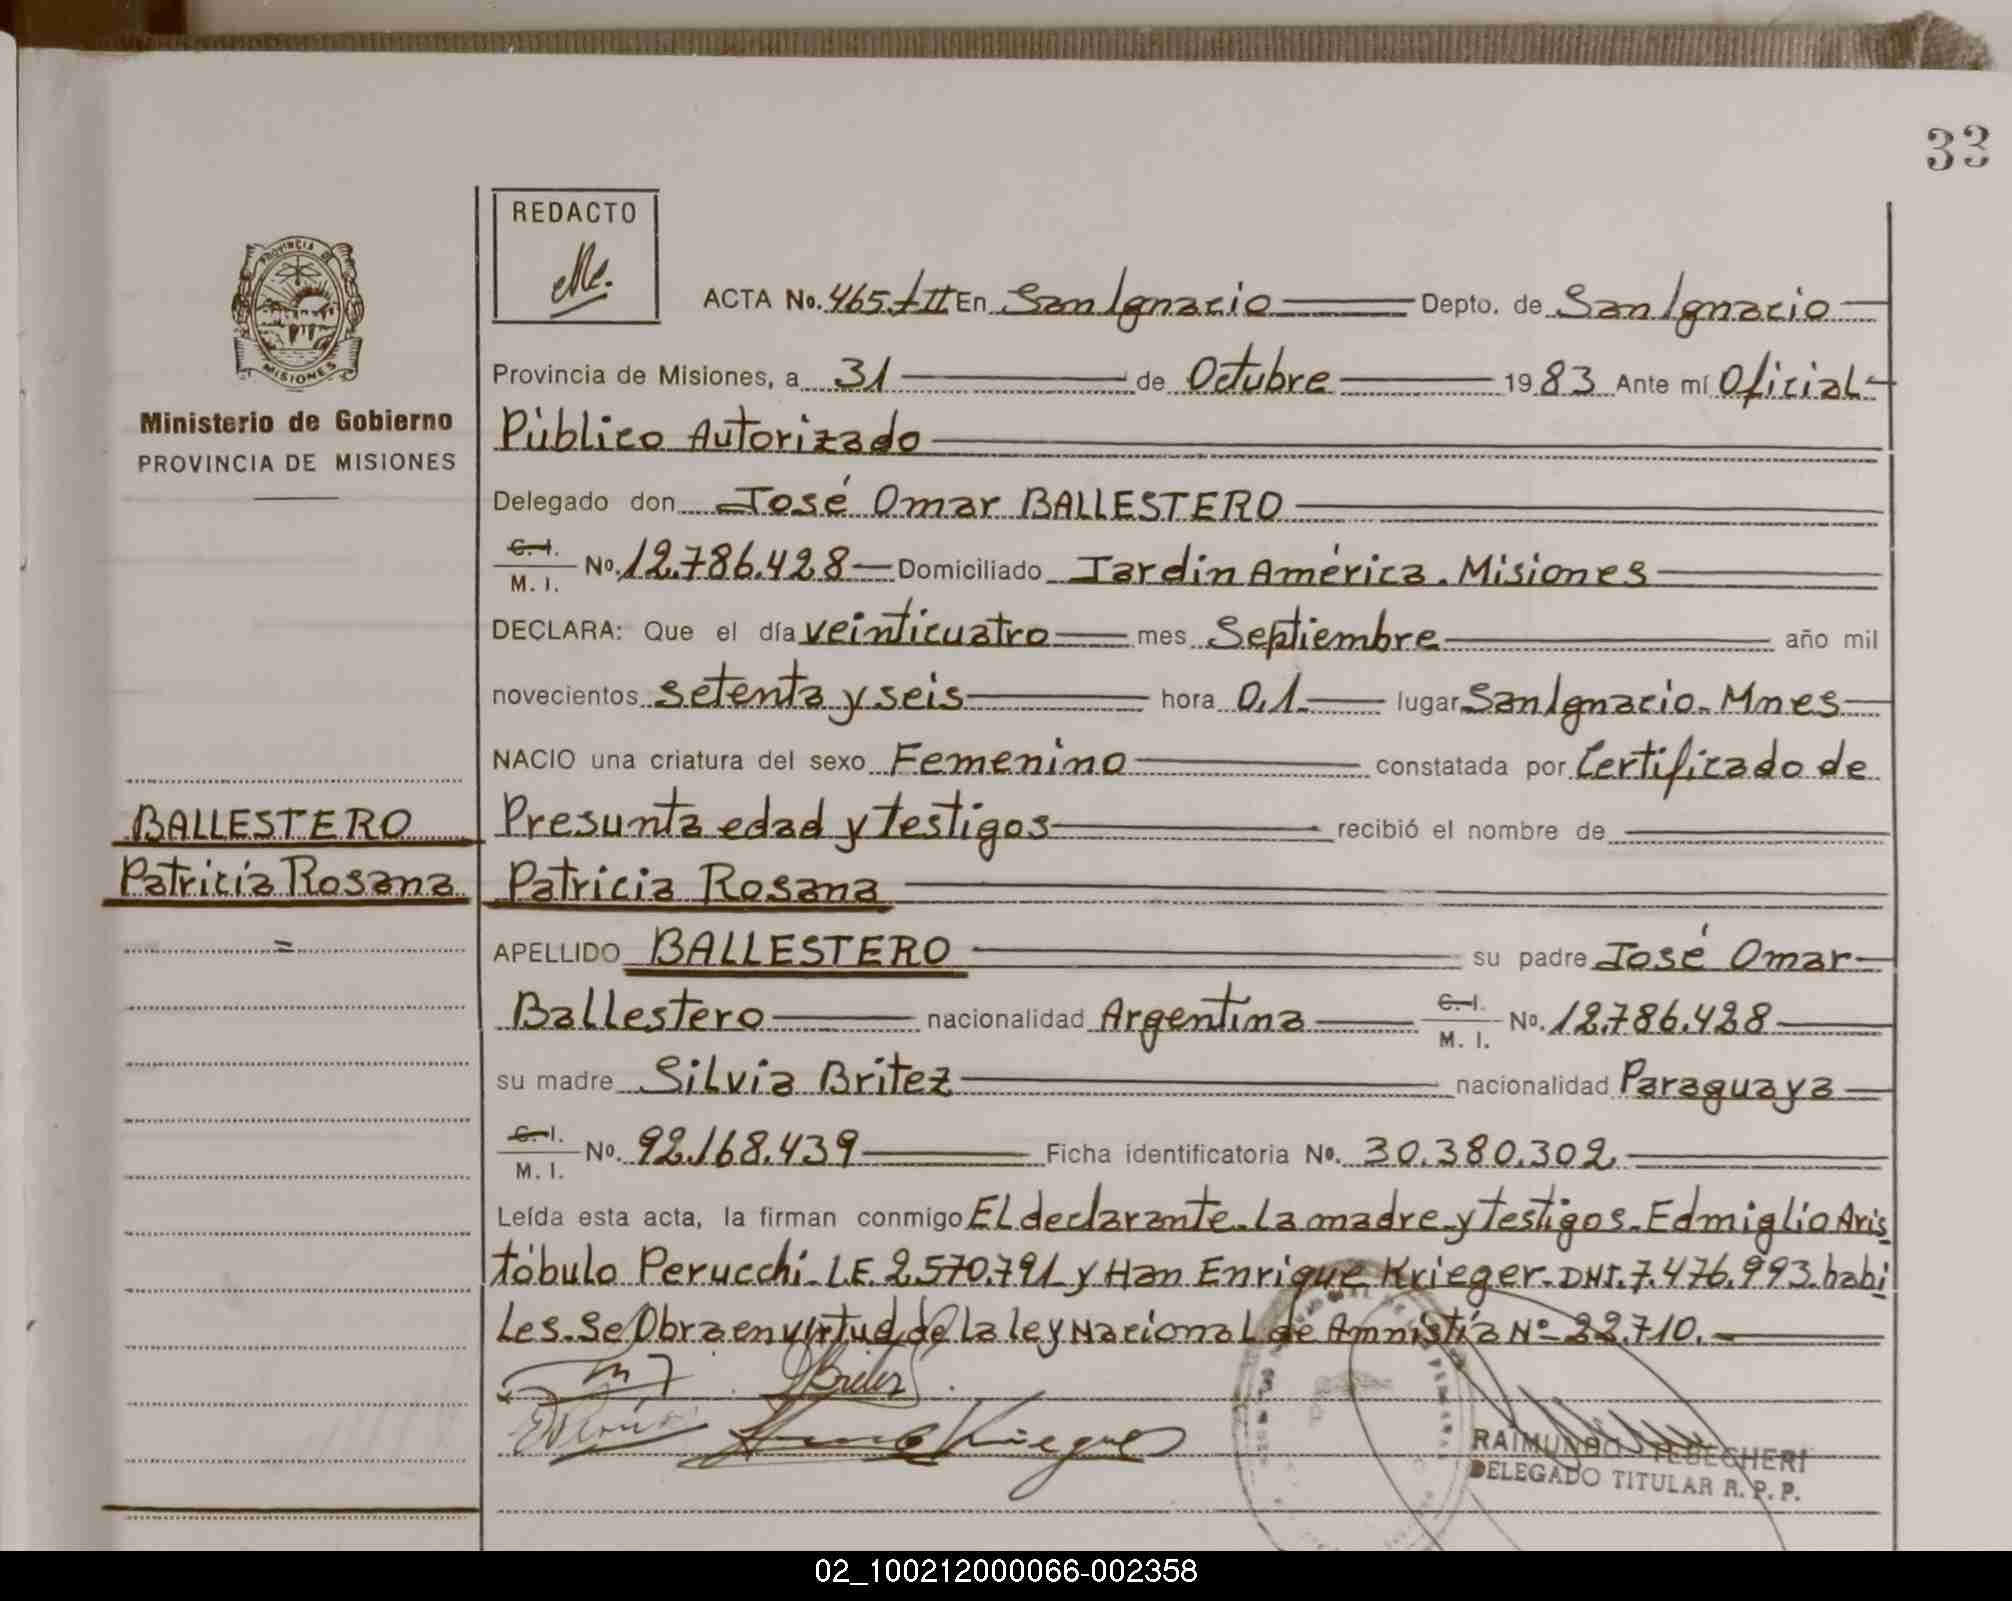 33
REDACTO
PROVINCIA DE
MISIONES
Ministerio de Gobierno
PROVINCIA DE MISIONES
ACTA No. 465 tII En San Ignacio Depto. de San Ignacio
Provincia de Misiones, a 31 de Octubre 1983 Ante mí Oficial
Público Autorizado
Delegado don José Omar BALLESTERO
C. I. / M. I. No. 12.786.428 Domiciliado Jardin América. Misiones
DECLARA: Que el día veinticuatro mes Septiembre año mil
novecientos setenta y seis hora 0,1. lugar San Ignacio. Mnes
NACIO una criatura del sexo Femenino constatada por Certificado de
BALLESTERO
Presunta edad y testigos recibió el nombre de
Patricia Rosana
Patricia Rosana
=
APELLIDO BALLESTERO su padre José Omar
Ballestero nacionalidad Argentina C. I. / M. I. No. 12.786.428
su madre Silvia Britez nacionalidad Paraguaya
C. I. / M. I. No. 92.168.439 Ficha identificatoria No. 30.380.302
Leída esta acta, la firman conmigo El declarante. La madre y testigos. Edmiglio Aris
tóbulo Perucchi. L.E. 2.570.791 y Han Enrique Krieger. DNI. 7.476.993. habi
les. Se Obra en virtud de la ley Nacional de Amnistía Nº 22.710.
RAIMUNDO TEDECHERI
DELEGADO TITULAR R. P. P.
02_100212000066-002358